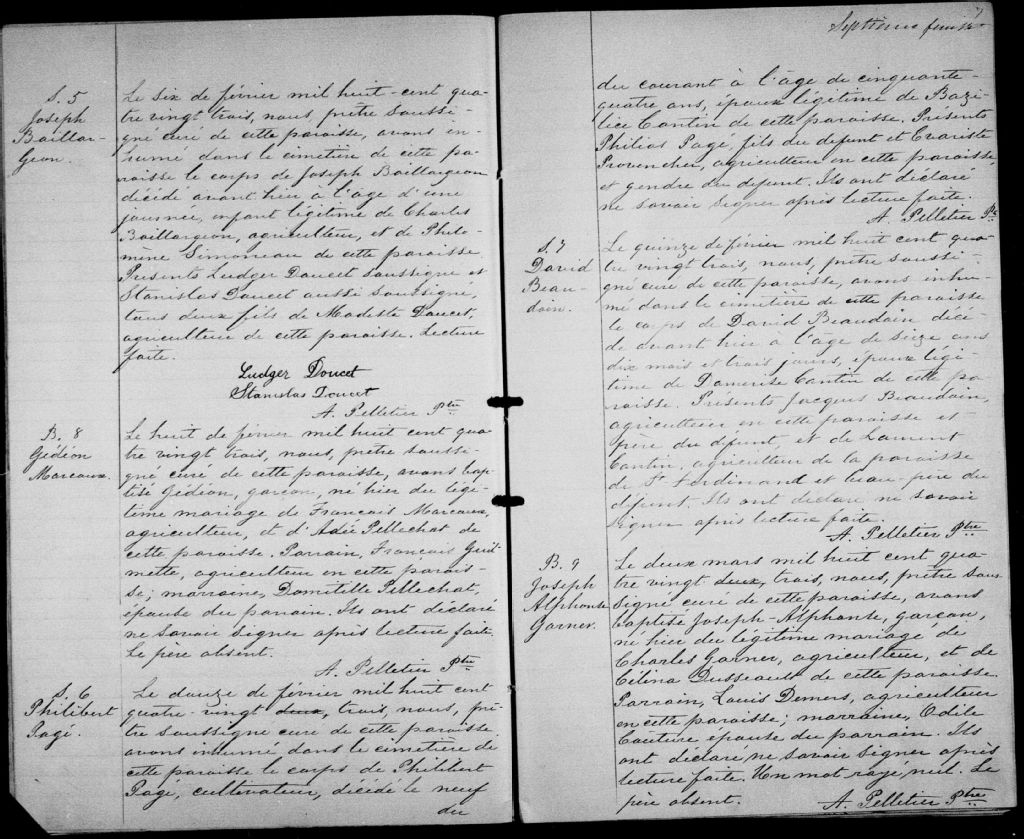 S. 5
Joseph
Baillar-
geon.
Le six de février mil huit-cent qua-
tre vingt trois, nous, prêtre soussi-
gné curé de cette paroisse, avons in-
humé dans le cimetière de cette pa-
roisse le corps de Joseph Baillargeon
décédé avant hier à l'âge d'une
journée, enfant légitime de Charles
Baillargeon, agriculteur, et de Philo-
mène Simoneau de cette paroisse.
Présents Ludger Doucet soussigné et
Stanislas Doucet aussi soussigné,
tous deux fils de Modeste Doucet,
agriculteur de cette paroisse. Lecture
faite.
Ludger Doucet
Stanislas Doucet
A. Pelletier Ptre
B. 8
Gédéon
Marcoux.
Le huit de février mil huit cent qua-
tre vingt trois, nous, prêtre soussi-
gné curé de cette paroisse, avons bap-
tisé Gédéon, garçon, né hier du légi-
time mariage de François Marcoux,
agriculteur, et d'Adée Pellechat de
cette paroisse. Parrain, François Guil-
mette, agriculteur en cette parois-
se; marraine, Domitille Pellechat,
épouse du parrain. Ils ont déclaré
ne savoir signer après lecture faite.
Le père absent.
A. Pelletier Ptre
S. 6
Philibert
Pagé.
Le douze de février mil huit cent
quatre-vingt deux, trois, nous, prê-
tre soussigné curé de cette paroisse.
avons inhumé dans le cimetière de
cette paroisse le corps de Philibert
Pagé, cultivateur, décédé le neuf
du
7
Septième feuillet
du courant à l'âge de cinquante-
quatre ans, époux légitime de Bazi-
lice Cantin de cette paroisse. Présents
Philias Pagé, fils du defunt et Evariste
Provencher, agriculteur en cette paroisse,
et gendre du defunt. Ils ont déclaré
ne savoir signer après lecture faite.
A. Pelletier Ptre
S. 7
David
Beau-
doin.
Le quinze de février mil huit cent qua-
tre vingt trois, nous, prêtre soussi-
gné curé de cette paroisse, avons inhu-
mé dans le cimetière de cette paroisse
le corps de David Beaudoin décé-
dé avant hier à l'âge de seize ans
dix mois et trois jours, époux légi-
time de Damerise Cantin de cette pa-
roisse. Présents Jacques Beaudoin,
agriculteur en cette paroisse et
père du défunt et de Laurent
Cantin, agriculteur de la paroisse
de St Ferdinand et beau père du
défunt. Ils ont déclaré ne savoir
signer après lecture faite.
A. Pelletier Ptre
B. 9
Joseph
Alphonse
Garner.
Le deux mars mil huit cent qua-
tre vingt deux, trois, nous, prêtre sous-
signé curé de cette paroisse, avons
baptisé Joseph-Alphonse, garçon,
né hier du légitime mariage de
Charles Garner, agriculteur, et de
Célina Dusseault de cette paroisse.
Parrain, Louis Demers, agriculteur
en cette paroisse; marraine, Odile
Couture épouse du parrain. Ils
ont déclaré ne savoir signer après
lecture faite. Un mot rayé nul. Le
père absent.
A. Pelletier Ptre